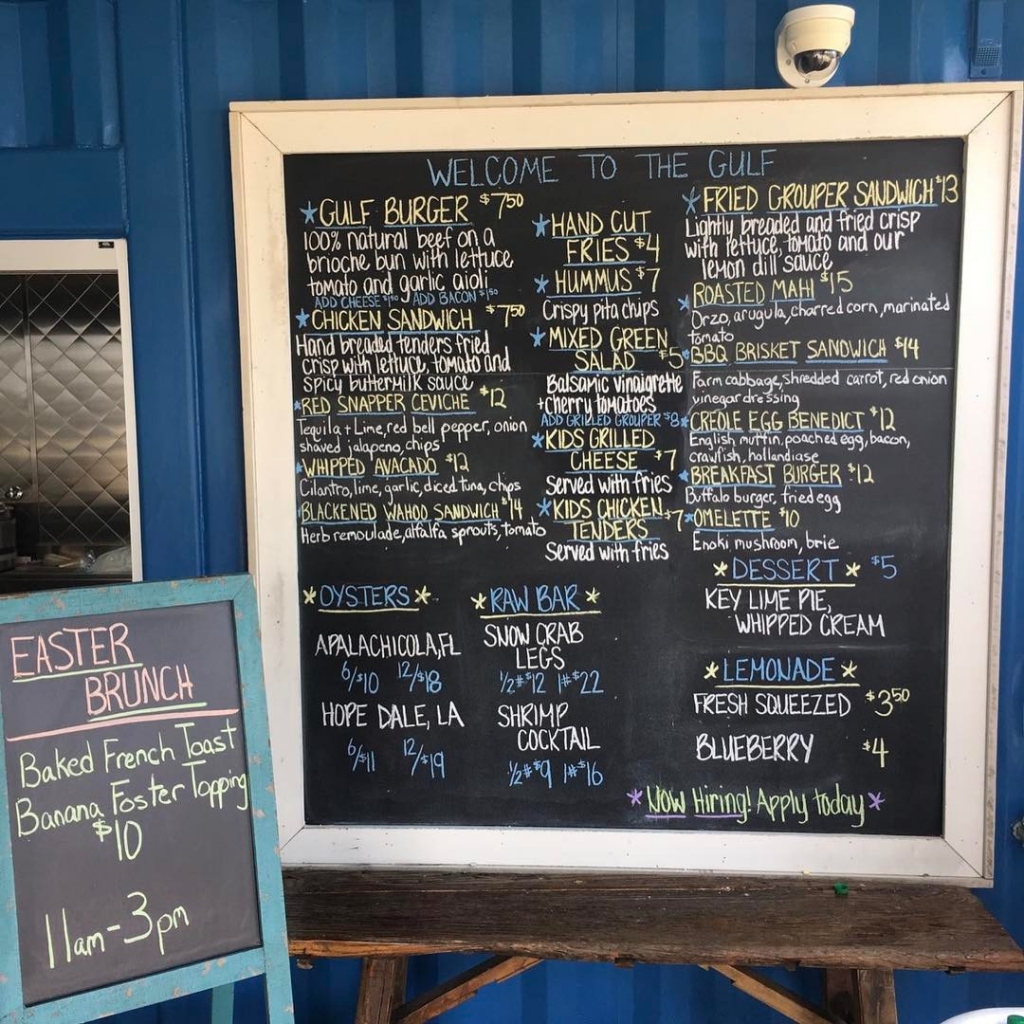 WELCOME TO THE GULF
GULF BURGER $7.50
100% natural beef on a
brioche bun with lettuce
tomato and garlic aioli
ADD CHEESE $1.50 / ADD BACON $1.50
CHICKEN SANDWICH $7.50
Hand breaded tenders fried
crisp with lettuce, tomato and
spicy buttermilk sauce
RED SNAPPER CEVICHE $12
Tequila + Lime, red bell pepper, onion
shaved jalapeno, chips
WHIPPED AVACADO $12
Cilantro, lime, garlic, diced tuna, chips
BLACKENED WAHOO SANDWICH $14
Herb remoulade, alfalfa sprouts, tomato
HAND CUT
FRIES $4
HUMMUS $7
Crispy pita chips
MIXED GREEN
SALAD $5
Balsamic vinaigrette
+ cherry tomatoes
ADD GRILLED GROUPER $8
KIDS GRILLED
CHEESE $7
Served with fries
KIDS CHICKEN
TENDERS $7
Served with fries
FRIED GROUPER SANDWICH $13
Lightly breaded and fried crisp
with lettuce, tomato and our
lemon dill sauce
ROASTED MAHI $15
Orzo, arugula, charred corn, marinated
tomato
BBQ BRISKET SANDWICH $14
Farm cabbage, shredded carrot, red onion
vinegar dressing
CREOLE EGG BENEDICT $12
English muffin, poached egg, bacon,
crawfish, hollandiase
BREAKFAST BURGER $12
Buffalo burger, fried egg
OMELETTE $10
Enoki mushroom, brie
OYSTERS
APALACHICOLA, FL
6/$10 12/$18
HOPE DALE, LA
6/$11 12/$19
RAW BAR
SNOW CRAB
LEGS
1/2# $12 1# $22
SHRIMP
COCKTAIL
1/2# $9 1# $16
DESSERT $5
KEY LIME PIE,
WHIPPED CREAM
LEMONADE
FRESH SQUEEZED $3.50
BLUEBERRY $4
Now Hiring! Apply today
EASTER
BRUNCH
Baked French Toast
Banana Foster Topping
$10
11am-3pm